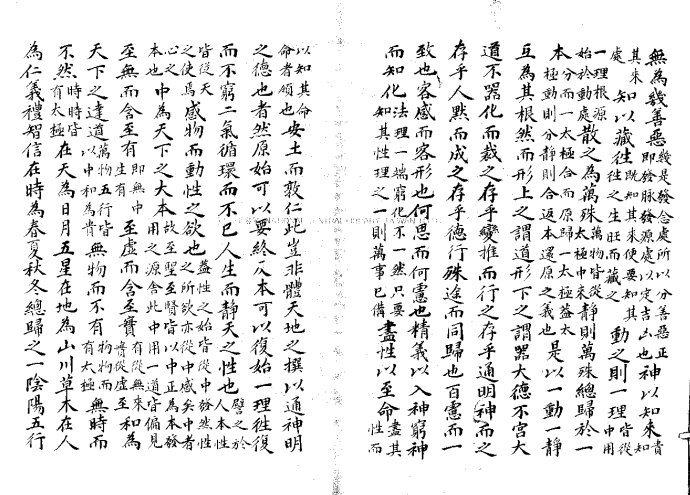 無為幾善惡幾是發念處所以分善惡正即發脉發源處以定吉凶也神以知來貴知
其來處知以藏往既知其來便要知其往之生旺而藏之動之則一理皆從中用
一理根源始於動處散之為萬殊萬物皆從太極中來靜則萬殊總歸於一
本分而一太極合而原歸一太極蓋太極動則分靜則合返本還原之義也是以一動一靜
互為其根然而形上之謂道形下之謂器大德不官大
道不器化而裁之存乎變推而行之存乎通明神而之
存乎人默而成之存乎德行殊途而同歸也百慮而一
致也容感而容形也何思而何慮也精義以入神窮神
而知化法理一端窮化不一然只要知其性理之一則萬事已備盡性以至命盡其性而
以知其命命者頒也安土而敦仁此豈非體天地之撰以通神明
之德也者然原始可以要終反本可以復始一理往復
而不窮二氣循環而不已人生而靜天之性也譬之於人本性
皆從天之使焉感物而動性之欲也蓋性之始皆從中發然性之所欲亦從中感矣中者
心之本也中為天下之大本故至聖至賢皆以中正為本發用之源舍此中用一道皆偏見
至無而含至有即無中生有至虛而含至實有從無來實從虛至和為
天下之達道萬物五行皆以中和為貴無物而不有物物而有太極無時而
不然時時皆有太極在天為日月五星在地為山川草木在人
為仁義禮智信在時為春夏秋冬總歸之一陰陽五行